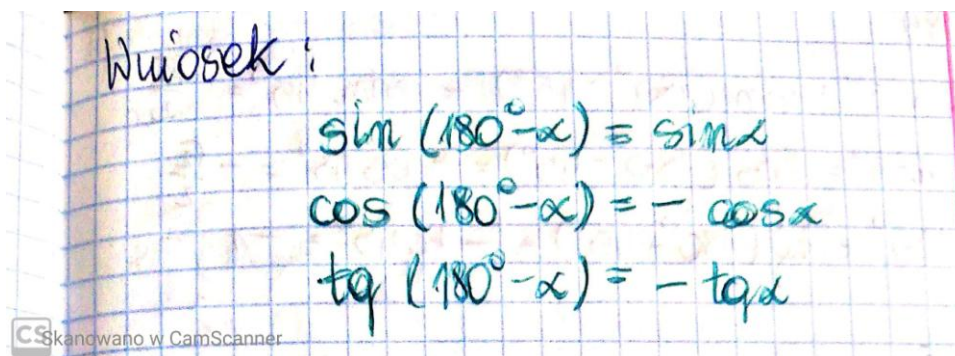 Wniosek :
sin (180°-α) = sinα
cos (180°-α) = - cosα
tg (180°-α) = - tgα
CS Skanowano w CamScanner